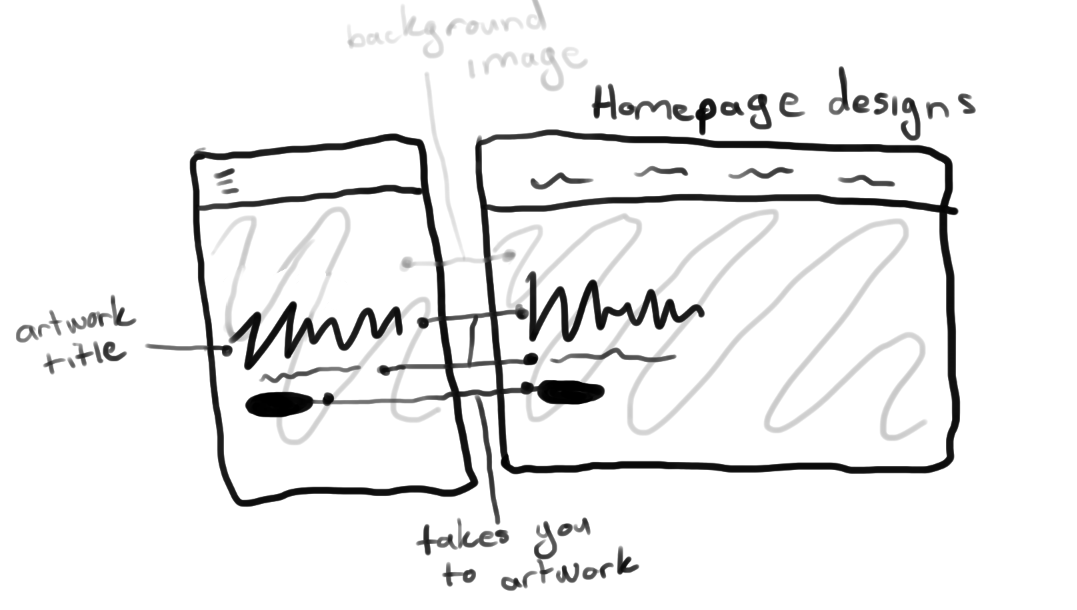 background
image
Homepage designs
artwork
title
takes you
to artwork